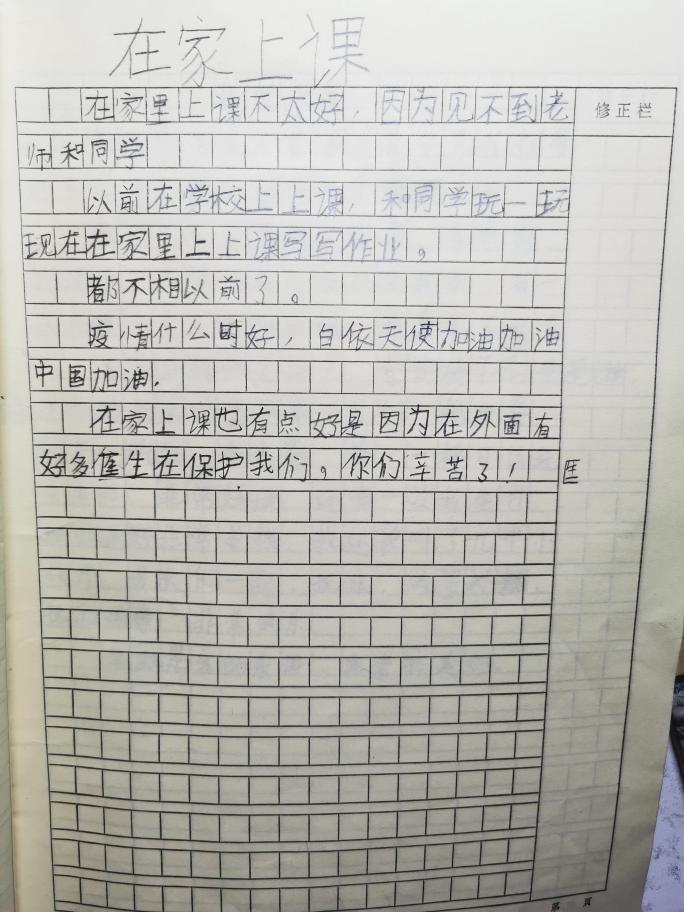 在家上课
在家里上课不太好，因为见不到老
修正栏
师和同学
以前在学校上上课，和同学玩一玩
现在在家里上上课写写作业。
都不相以前了。
疫情什么时好，白依天使加油加油
中国加油．
在家上课也有点好是因为在外面有
好多生在保护我们。你们辛苦了！
医
第 页